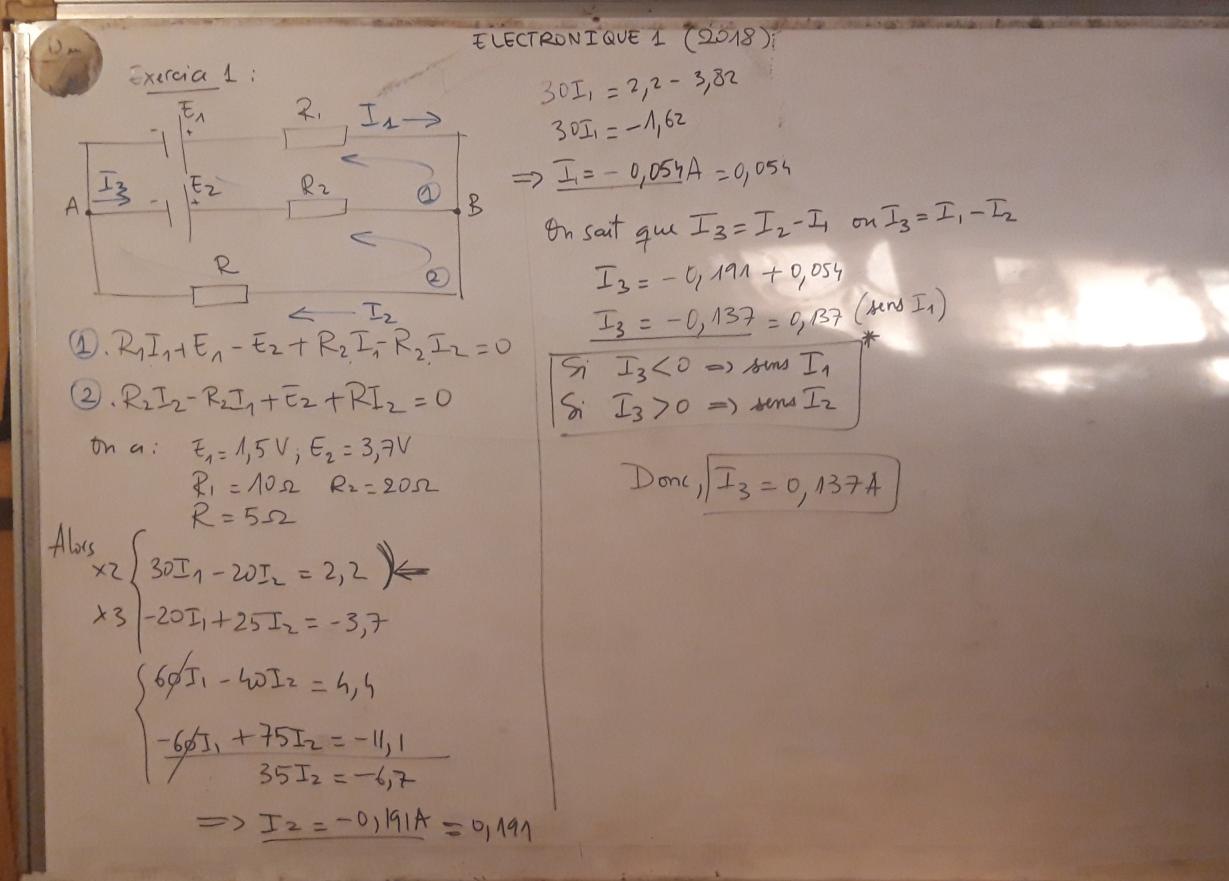 ELECTRONIQUE 1 (2018):
Exercice 1 :
E₁ R₁ I₁ →
- +
I₃ E₂ R₂ ①
A - + B
R ②
← I₂
①. R₁I₁+E₁-E₂+R₂I₁-R₂I₂=0
②. R₂I₂-R₂I₁+E₂+RI₂=0
On a: E₁=1,5V; E₂=3,7V
R₁=10Ω R₂=20Ω
R=5Ω
Alors
×2 30I₁-20I₂=2,2 ←
×3 -20I₁+25I₂=-3,7
60I₁-40I₂=4,4
-60I₁+75I₂=-11,1
35I₂=-6,7
=> I₂=-0,191A=0,191
30I₁=2,2-3,82
30I₁=-1,62
=> I₁=-0,054A=0,054
On sait que I₃=I₂-I₁ ou I₃=I₁-I₂
I₃=-0,191+0,054
I₃=-0,137=0,137 (sens I₁)
*
Si I₃<0 => sens I₁
Si I₃>0 => sens I₂
Donc, I₃=0,137A